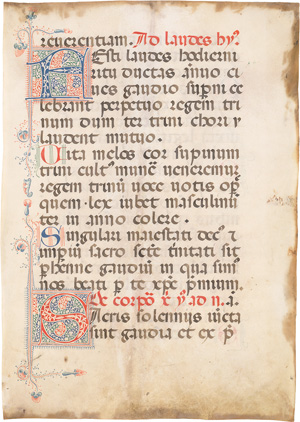 reuerentiam. Ad laudes hỹ.
Festi laudes hodierni
ritu ductas anno ci
ues gaudio supni ce
lebrant perpetuo regem tri
num dum ter trini chori y
laudent mutuo.
melos cor supinum
trini cult munē ueneremur
regem trinū uoce uotis
quem lex iubet masculinū
ter in anno colere.
Singulari maiestati dec
impiū sacro setē tinitati sit
phenne gaudiū in qua
nos beati p te xpē pmium.
De corpō x y ad n. a.
Sacris solenniis iūcta
sint gaudia et ex p